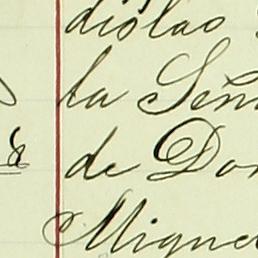 diolao
la Señ
de Don
Miguel